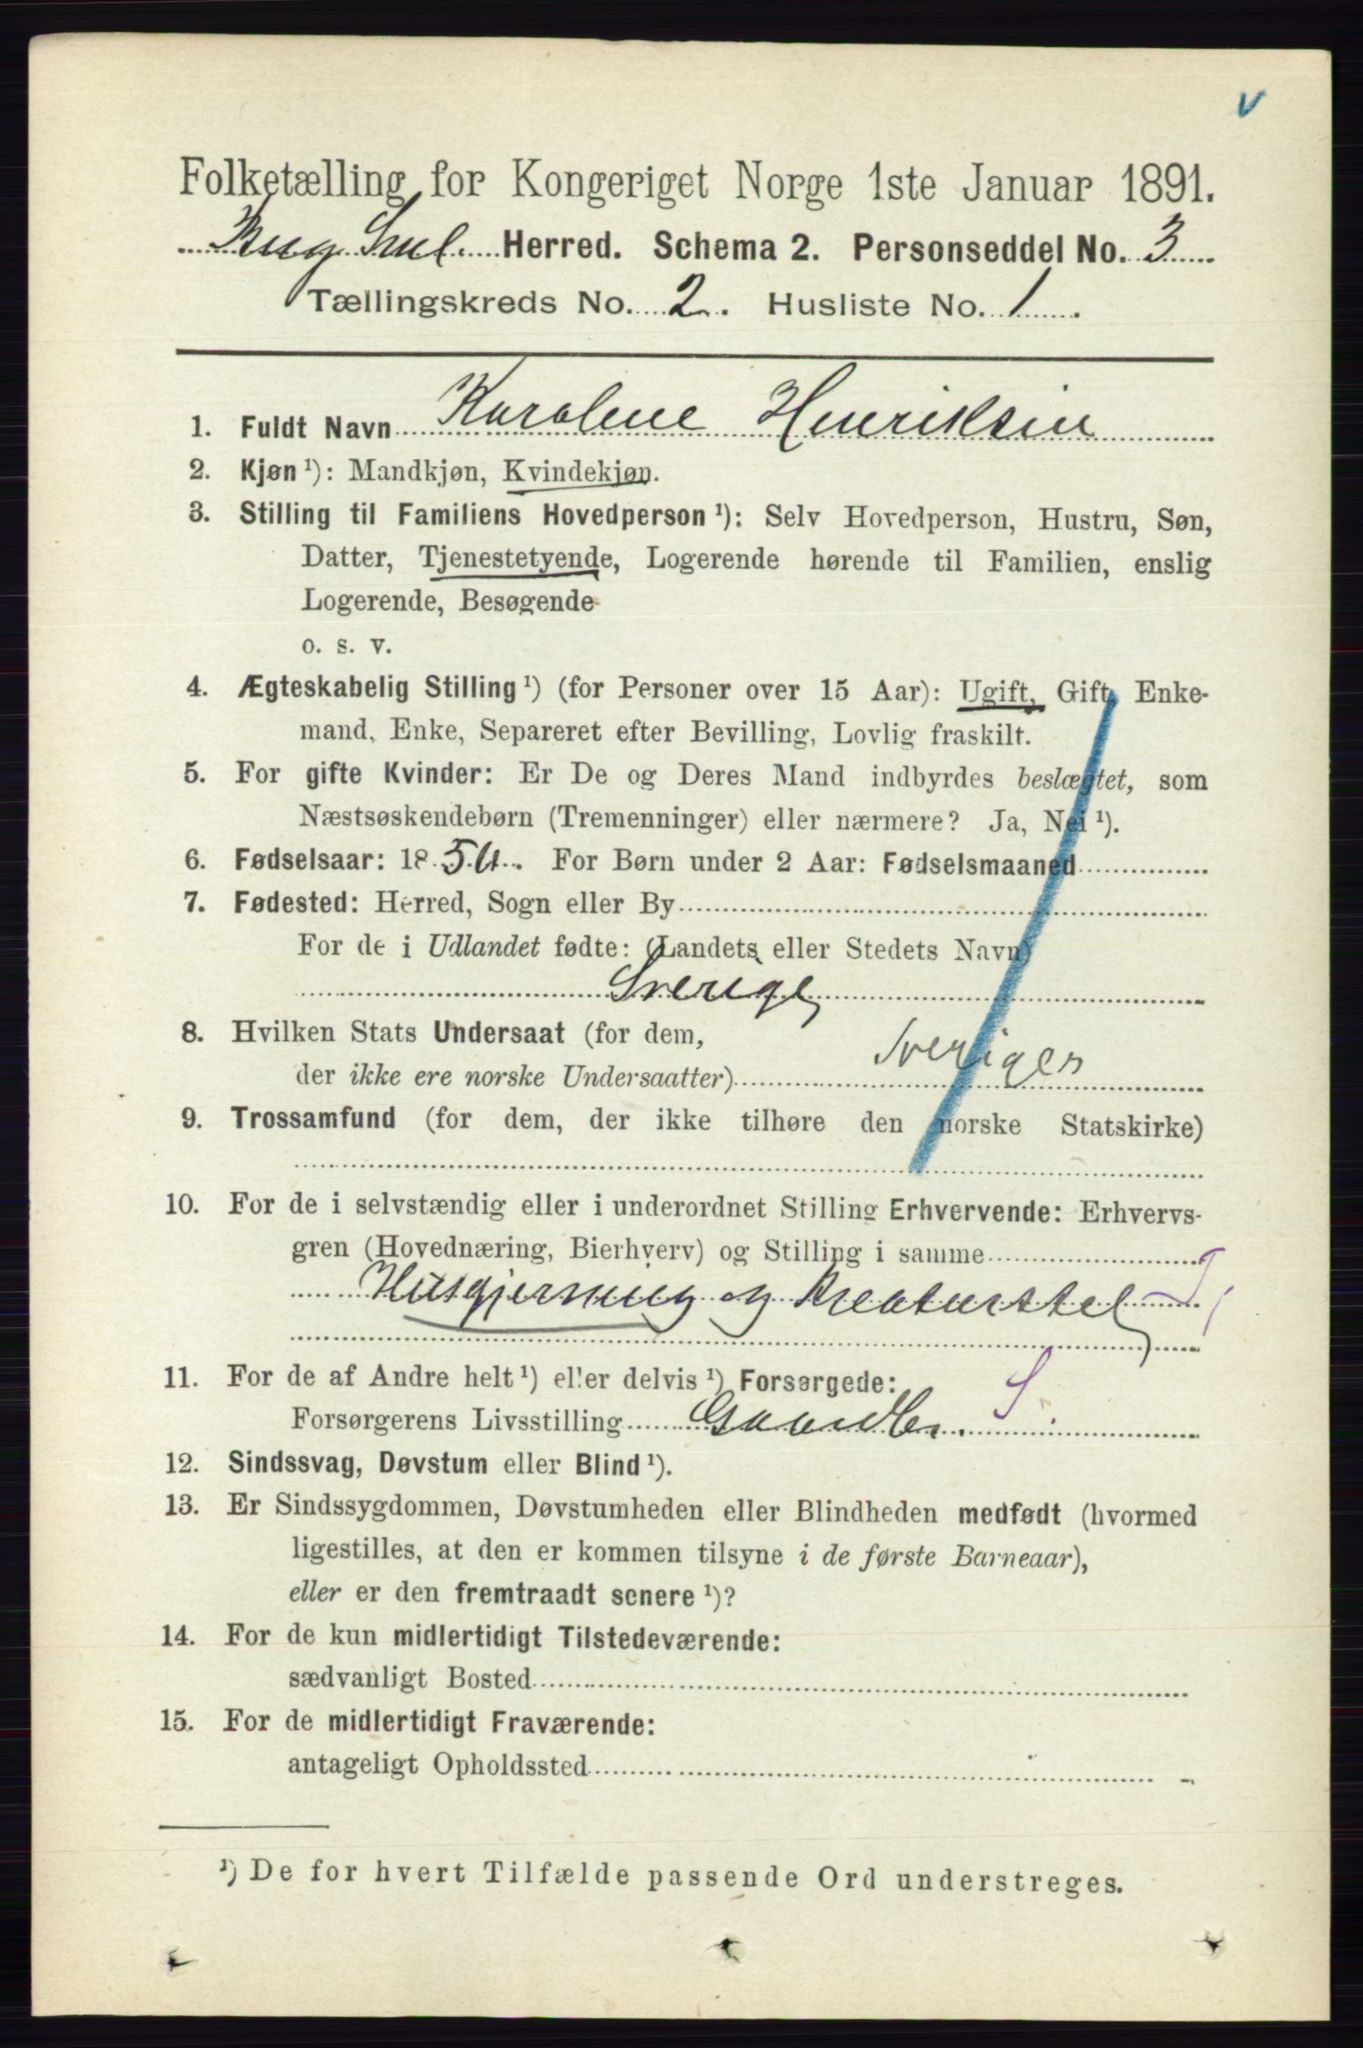 v
Folketælling for Kongeriget Norge 1ste Januar 1891.
Herred. Schema 2. Personseddel No. 3
Tællingskreds No. 2. Husliste No. 1.
1. Fuldt Navn Karolene Henriksen
2. Kjøn ¹): Mandkjøn, Kvindekjøn.
3. Stilling til Familiens Hovedperson ¹): Selv Hovedperson, Hustru, Søn,
Datter, Tjenestetyende, Logerende hørende til Familien, enslig
Logerende, Besøgende
o. s. v.
4. Ægteskabelig Stilling ¹) (for Personer over 15 Aar): Ugift, Gift, Enke-
mand, Enke, Separeret efter Bevilling, Lovlig fraskilt.
5. For gifte Kvinder: Er De og Deres Mand indbyrdes beslægtet, som
Næstsøskendebørn (Tremenninger) eller nærmere? Ja, Nei ¹).
6. Fødselsaar: 1854. For Børn under 2 Aar: Fødselsmaaned
7. Fødested: Herred, Sogn eller By
For de i Udlandet fødte: (Landets eller Stedets Navn)
Sverige
8. Hvilken Stats Undersaat (for dem,
der ikke ere norske Undersaatter) Sveriges
9. Trossamfund (for dem, der ikke tilhøre den norske Statskirke)
10. For de i selvstændig eller i underordnet Stilling Erhvervende: Erhvervs-
gren (Hovednæring, Bierhverv) og Stilling i samme
Husgjerning og Kreaturstel
11. For de af Andre helt ¹) eller delvis ¹) Forsørgede:
Forsørgerens Livsstilling Gaardbr. S.
12. Sindssvag, Døvstum eller Blind ¹).
13. Er Sindssygdommen, Døvstumheden eller Blindheden medfødt (hvormed
ligestilles, at den er kommen tilsyne i de første Barneaar),
eller er den fremtraadt senere ¹)?
14. For de kun midlertidigt Tilstedeværende:
sædvanligt Bosted
15. For de midlertidigt Fraværende:
antageligt Opholdssted
¹) De for hvert Tilfælde passende Ord understreges.